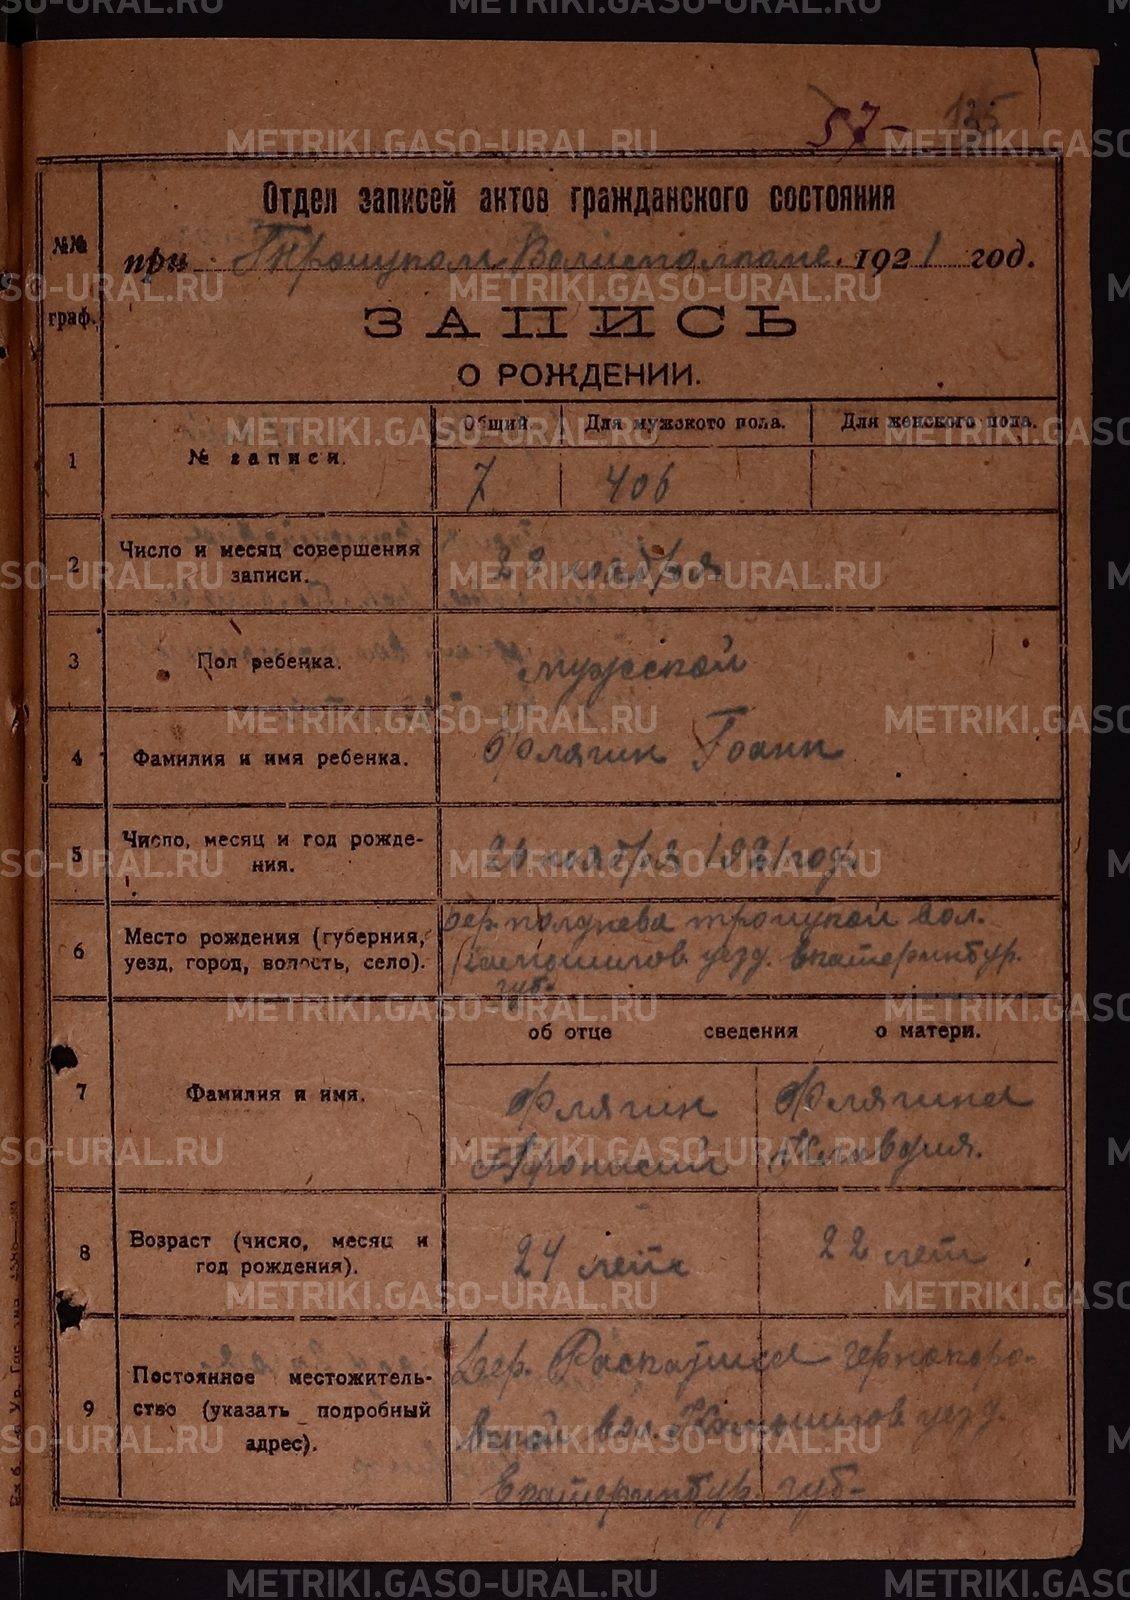 57-
135
Отдел записей актов гражданского состояния
№№ граф.
при Троицком Волисполкоме 1921 год.
ЗАПИСЬ
О РОЖДЕНИИ.
Общий Для мужского пола. Для женского пола.
1 № записи. 7 406
2 Число и месяц совершения записи. 29 ноября
3 Пол ребенка. мужской
4 Фамилия и имя ребенка. Флягин Іоанн
5 Число, месяц и год рождения. 26 ноября 1921 год.
6 Место рождения (губерния, уезд, город, волость, село).
дер. полднева троицкой вол.
Камышлов. уезд. Екатеринбур.
губ-
об отце сведения о матери.
7 Фамилия и имя.
Флягин Флягина
Афонасий Клавдия.
8 Возраст (число, месяц и год рождения). 24 лет 22 лет
9 Постоянное местожительство (указать подробный адрес).
Дер. черноко-
вской вол. Камышлов. уезд.
Екатеринбур. губ-
METRIKI.GASO-URAL.RU